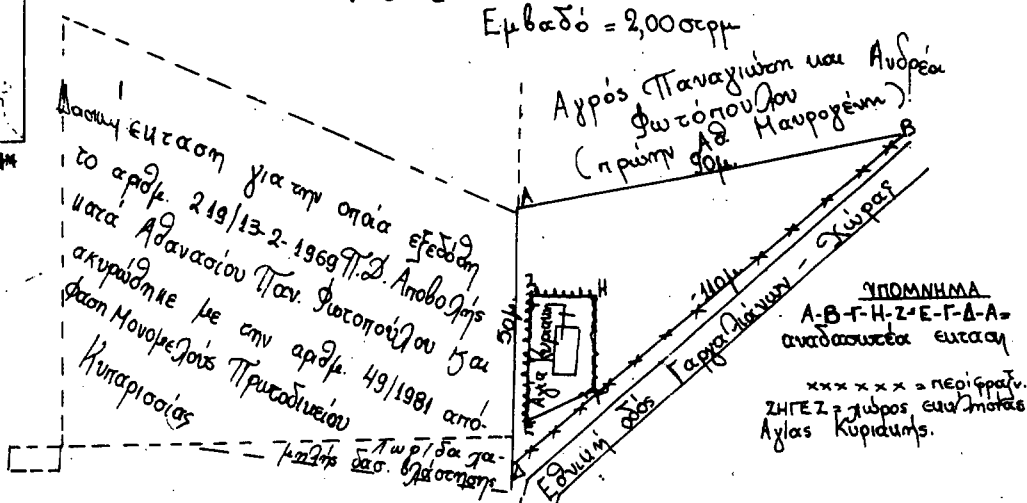 Εμβαδό = 2,00 στρμ
Αγρός Παναγιώτη και Ανδρέα
Φωτόπουλου
(πρώην Αθ Μαυρογένη)
90μ.
Δασική έκταση για την οποία εξεδόθη
το αριθμ. 219/13-2-1969 Π.Δ. Αποβολής
κατά Αθανασίου Παν. Φωτοπούλου και
ακυρώθηκε με την αριθμ. 49/1981 από-
φαση Μονομελούς Πρωτοδικείου
Κυπαρισσίας
Λωρίδα χα-
μηλής δασ. βλάστησης
Α
Β
50μ
110μ
Η
Αγία Κυριακή
Γ
Δ
Εθνική οδός Γαργαλιάνων - Χώρας
ΥΠΟΜΝΗΜΑ
Α-Β-Γ-Η-Ζ-Ε-Γ-Δ-Α=
αναδασωτέα έκταση
xxxxxx = περίφραξη.
ΖΗΓΕΖ = χώρος εκκλησίας
Αγίας Κυριακής.